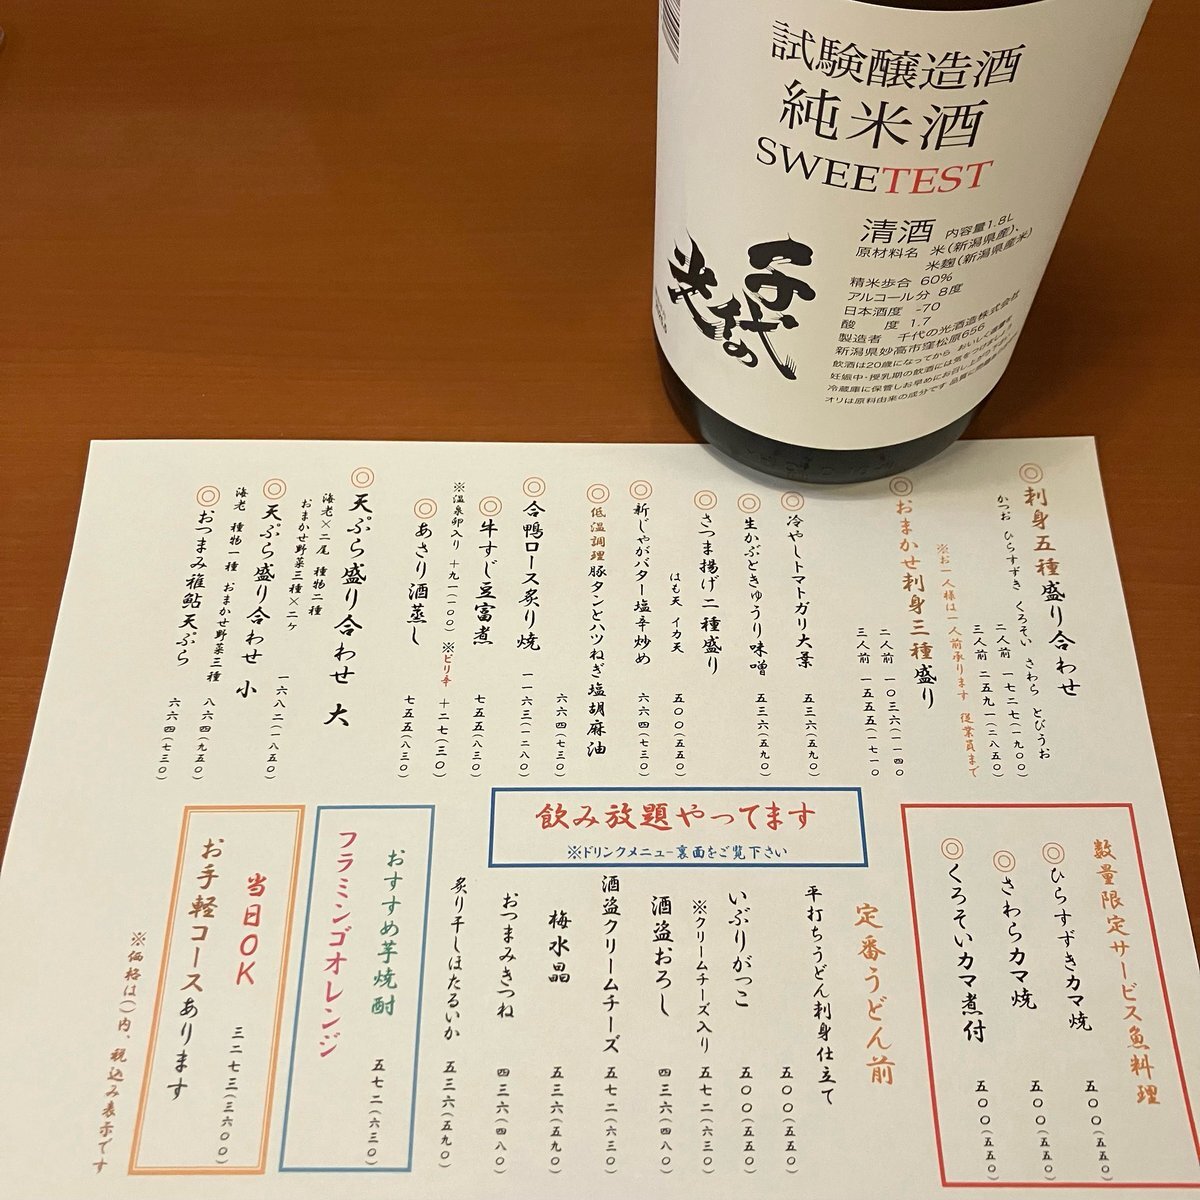 試験醸造酒
純米酒
SWEETEST
清酒 内容量1.8L
原材料名 米(新潟県産)、
米麹(新潟県産米)
精米歩合 60%
アルコール分 8度
日本酒度 -70
酸度 1.7
製造者 千代の光酒造株式会社
新潟県妙高市窪松原656
飲酒は20歳になってから おいしく適量を
妊娠中・授乳期の飲酒には気をつけましょう
冷蔵庫に保管しお早めにお召し上がり下さい
オリは原料由来の成分です
千代の光
◎刺身五種盛り合わせ
かつお ひらすずき くろそい さわら とびうお
二人前 一七二七(一九〇〇)
三人前 二五九一(二八五〇)
※お一人様は一人前承ります 従業員まで
◎おまかせ刺身三種盛り
二人前 一〇三六(一一四〇)
三人前 一五五五(一七一〇)
◎冷やしトマトガリ大葉 五三六(五九〇)
◎生かぶときゅうり味噌 五三六(五九〇)
◎さつま揚げ二種盛り
はも天 イカ天 五〇〇(五五〇)
◎新じゃがバター塩辛炒め 六六四(七三〇)
◎低温調理豚タンとハツねぎ塩胡麻油 六六四(七三〇)
◎合鴨ロース炙り焼 一一六三(一二八〇)
◎牛すじ豆富煮 七五五(八三〇)
※温泉卵入り +九一(一〇〇) ※ピリ辛 +二七(三〇)
◎あさり酒蒸し 七五五(八三〇)
◎天ぷら盛り合わせ 大
海老×二尾 種物二種
おまかせ野菜三種×二ケ 一六八二(一八五〇)
◎天ぷら盛り合わせ 小
海老 種物一種 おまかせ野菜三種 八六四(九五〇)
◎おつまみ稚鮎天ぷら 六六四(七三〇)
数量限定サービス魚料理
◎ひらすずきカマ焼 五〇〇(五五〇)
◎さわらカマ焼 五〇〇(五五〇)
◎くろそいカマ煮付 五〇〇(五五〇)
飲み放題やってます
※ドリンクメニュー裏面をご覧下さい
定番うどん前
平打ちうどん刺身仕立て 五〇〇(五五〇)
いぶりがっこ 五〇〇(五五〇)
※クリームチーズ入り 五七二(六三〇)
酒盗おろし 四三六(四八〇)
酒盗クリームチーズ 五七二(六三〇)
梅水晶 五三六(五九〇)
おつまみきつね 四三六(四八〇)
炙り干しほたるいか 五三六(五九〇)
おすすめ芋焼酎
フラミンゴオレンジ
五七二(六三〇)
当日OK
お手軽コースあります
三二七三(三六〇〇)
※価格は()内、税込み表示です